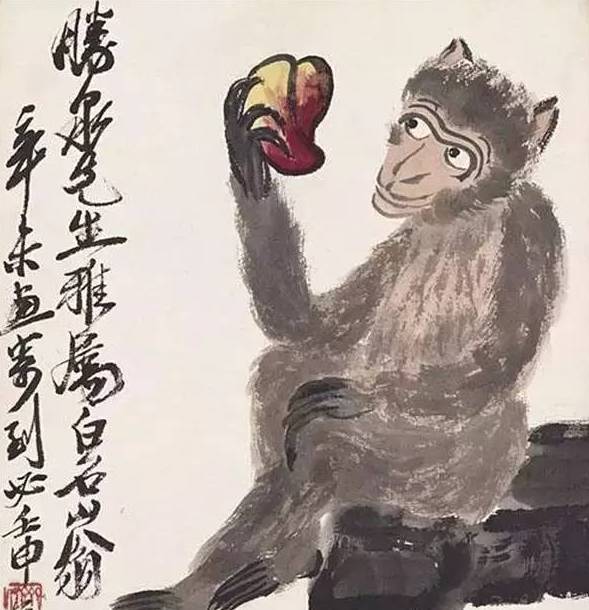 勝泉先生雅屬白石山翁
辛未畫寄到必壬申